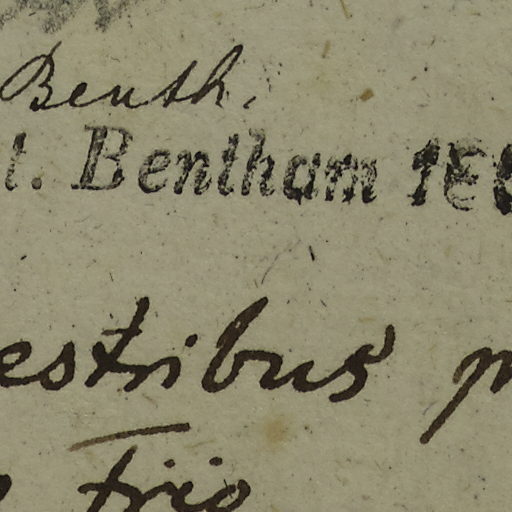 Benth.
t. Bentham 18
estribus
Trio